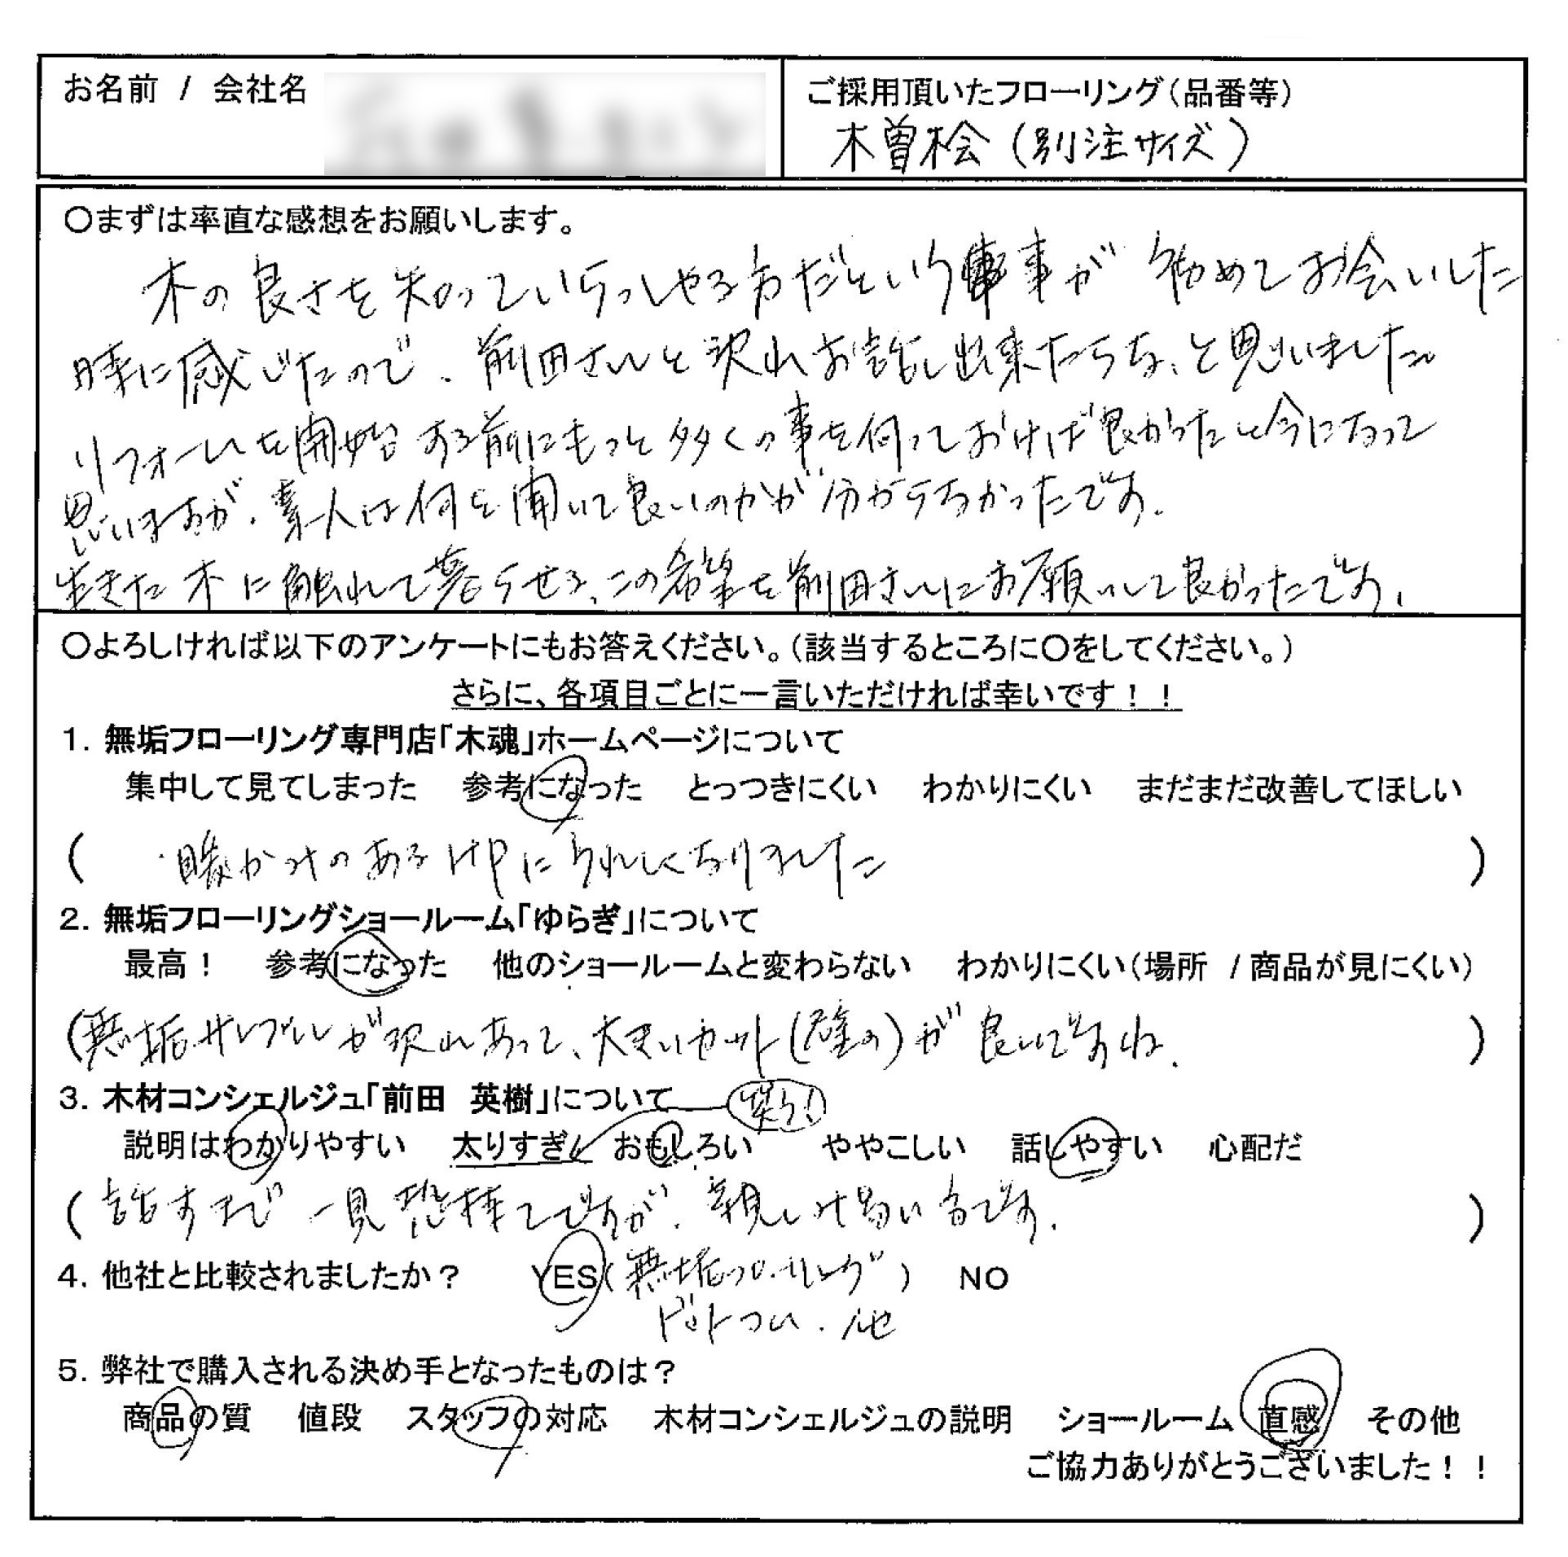 お名前 / 会社名
ご採用頂いたフローリング(品番等)
木曽桧(別注サイズ)
○まずは率直な感想をお願いします。
木の良さを知っていらっしゃる方だという事が初めてお会いした
時に感じたので、前田さんと沢山お話し出来たらな、と思いました。
リフォームを開始する前にもっと多くの事を伺っておけば良かったと今になって
思いますが、素人は何を聞いて良いのかが分からなかったです。
生きた木に触れて暮らせる、この希望を前田さんにお願いして良かったです。
○よろしければ以下のアンケートにもお答えください。(該当するところに○をしてください。)
さらに、各項目ごとに一言いただければ幸いです!!
1. 無垢フローリング専門店「木魂」ホームページについて
集中して見てしまった 参考になった とっつきにくい わかりにくい まだまだ改善してほしい
( ・暖かみのあるHPにうれしくなりました )
2. 無垢フローリングショールーム「ゆらぎ」について
最高! 参考になった 他のショールームと変わらない わかりにくい(場所 /商品が見にくい)
(無垢サンプルが沢山あって、大きいカット(壁の)が良いですね。 )
3. 木材コンシェルジュ「前田 英樹」について 笑う!
説明はわかりやすい 太りすぎ おもしろい ややこしい 話しやすい 心配だ
( 話すまで一見恐持てですが、親しみ易い方です。 )
4. 他社と比較されましたか? YES(無垢フローリング) NO
ドットコム・他
5. 弊社で購入される決め手となったものは?
商品の質 値段 スタッフの対応 木材コンシェルジュの説明 ショールーム 直感 その他
ご協力ありがとうございました!!